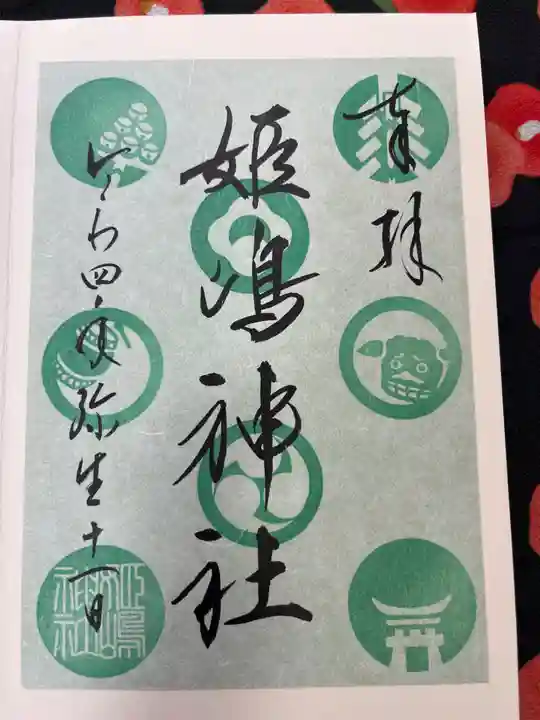 奉拝
姫嶋神社
令和四年弥生十一日
姫嶋神社